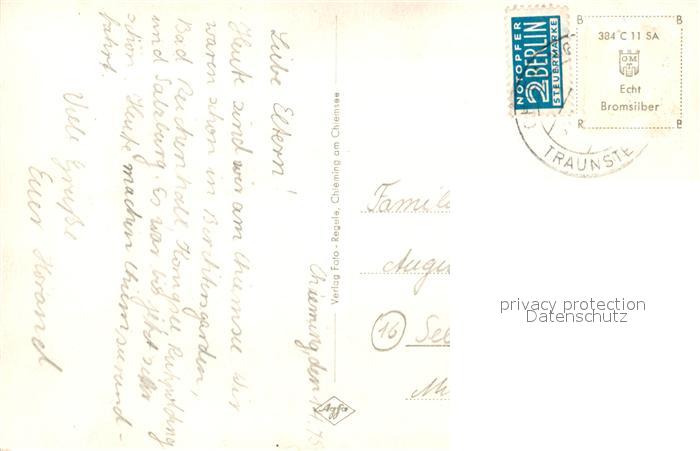 Chieming, den
Liebe Eltern!
Heute sind wir am Chiemsee wir
waren schon in Berchtesgarden,
Bad Reichenhall, Königsee Ruhpolding
und Salzburg. Es war bis jetzt sehr
schön. Heute machen Chiemseerund-
fahrt.
Viele Grüße
Euer
Verlag Foto - Regele, Chieming am Chiemsee
Agfa
NOTOPFER
2 BERLIN
STEUERMARKE
TRAUNSTE
B B
384 C 11 SA
OM
Echt
Bromsilber
R B
Famil
Augu
16 See
privacy protection
Datenschutz